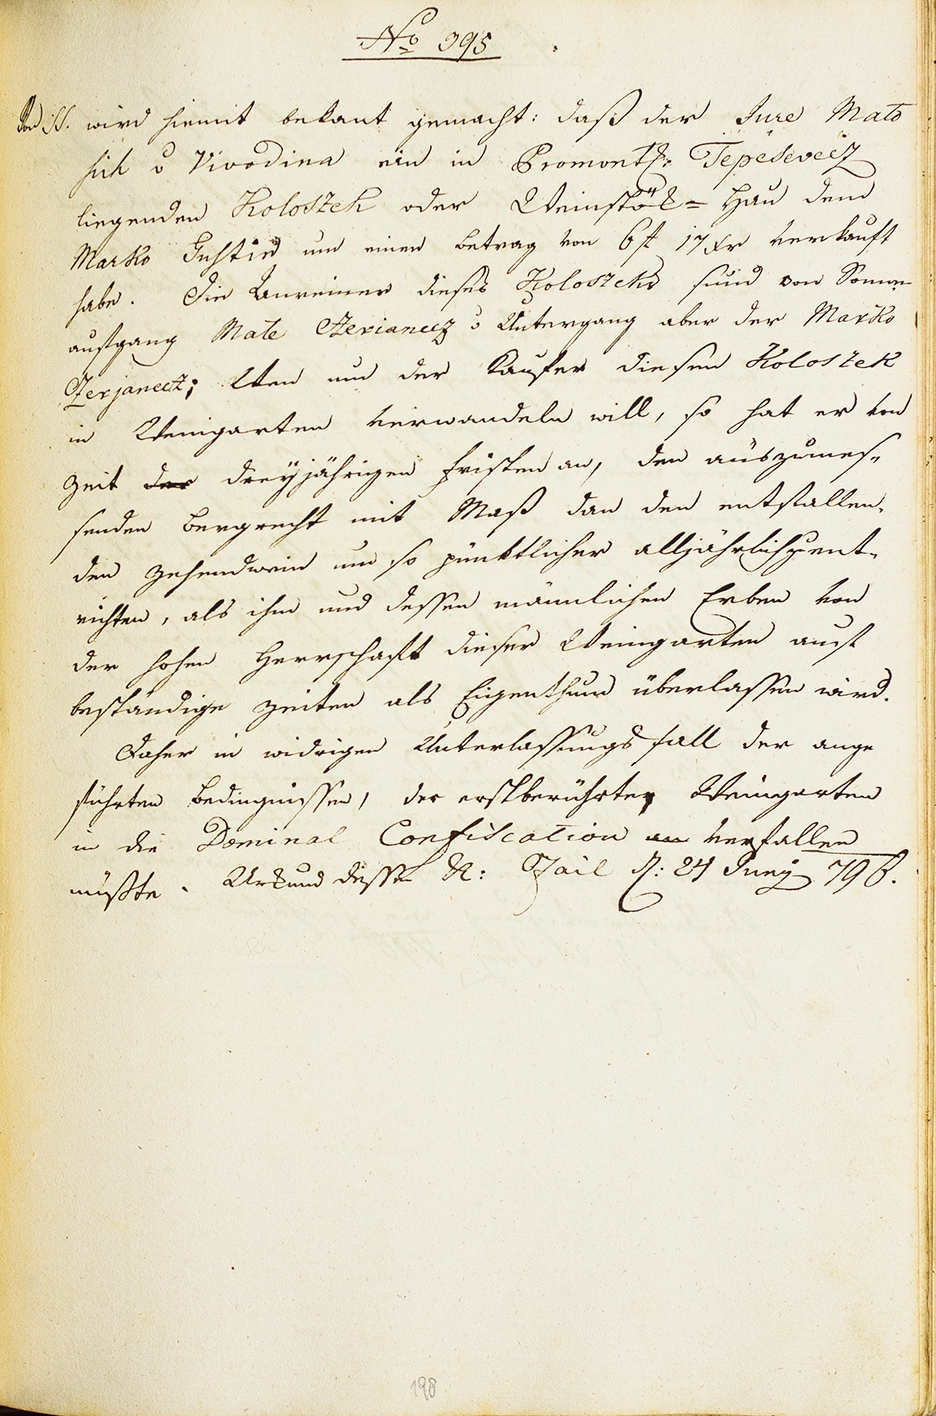 No 395
Von SS. wird hiemit bekant gemacht: daß der Jure Mato
sich v Vivodina ein in Promont: Tepesevecz
liegenden Kolosek oder Weinstök= Hau dem
Marko Gustin um einen Betrag von 6 f 17 xr verkauft
habe. Die Anreiner dieses Koloseks sind von Sonnen
aufgang Mate Zerianecz v Untergang aber der Marko
Zerjanecz; Wen nun der Käufer diesen Kolosek
in Weingarten verwandeln will, so hat er von
Zeit dreyjährigen fristen an, den auszumes-
senden Bergrecht mit Maß dan den entfallen-
den Zehendwein um so pünktlicher alljährlich zu ent-
richten, als ihm und dessen männlichen Erben von
der hohen Herrschaft dieser Weingarten auf
beständige Zeiten als Eigenthum überlassen wird.
Daher in widrigen Unterlassungs fall der ange
führten Bedingnissen, der erstberührte Weingarten
in die Dominal Confiscation verfallen
müßte. Urkund dessen &: Jail d: 24 Juny 798.
198